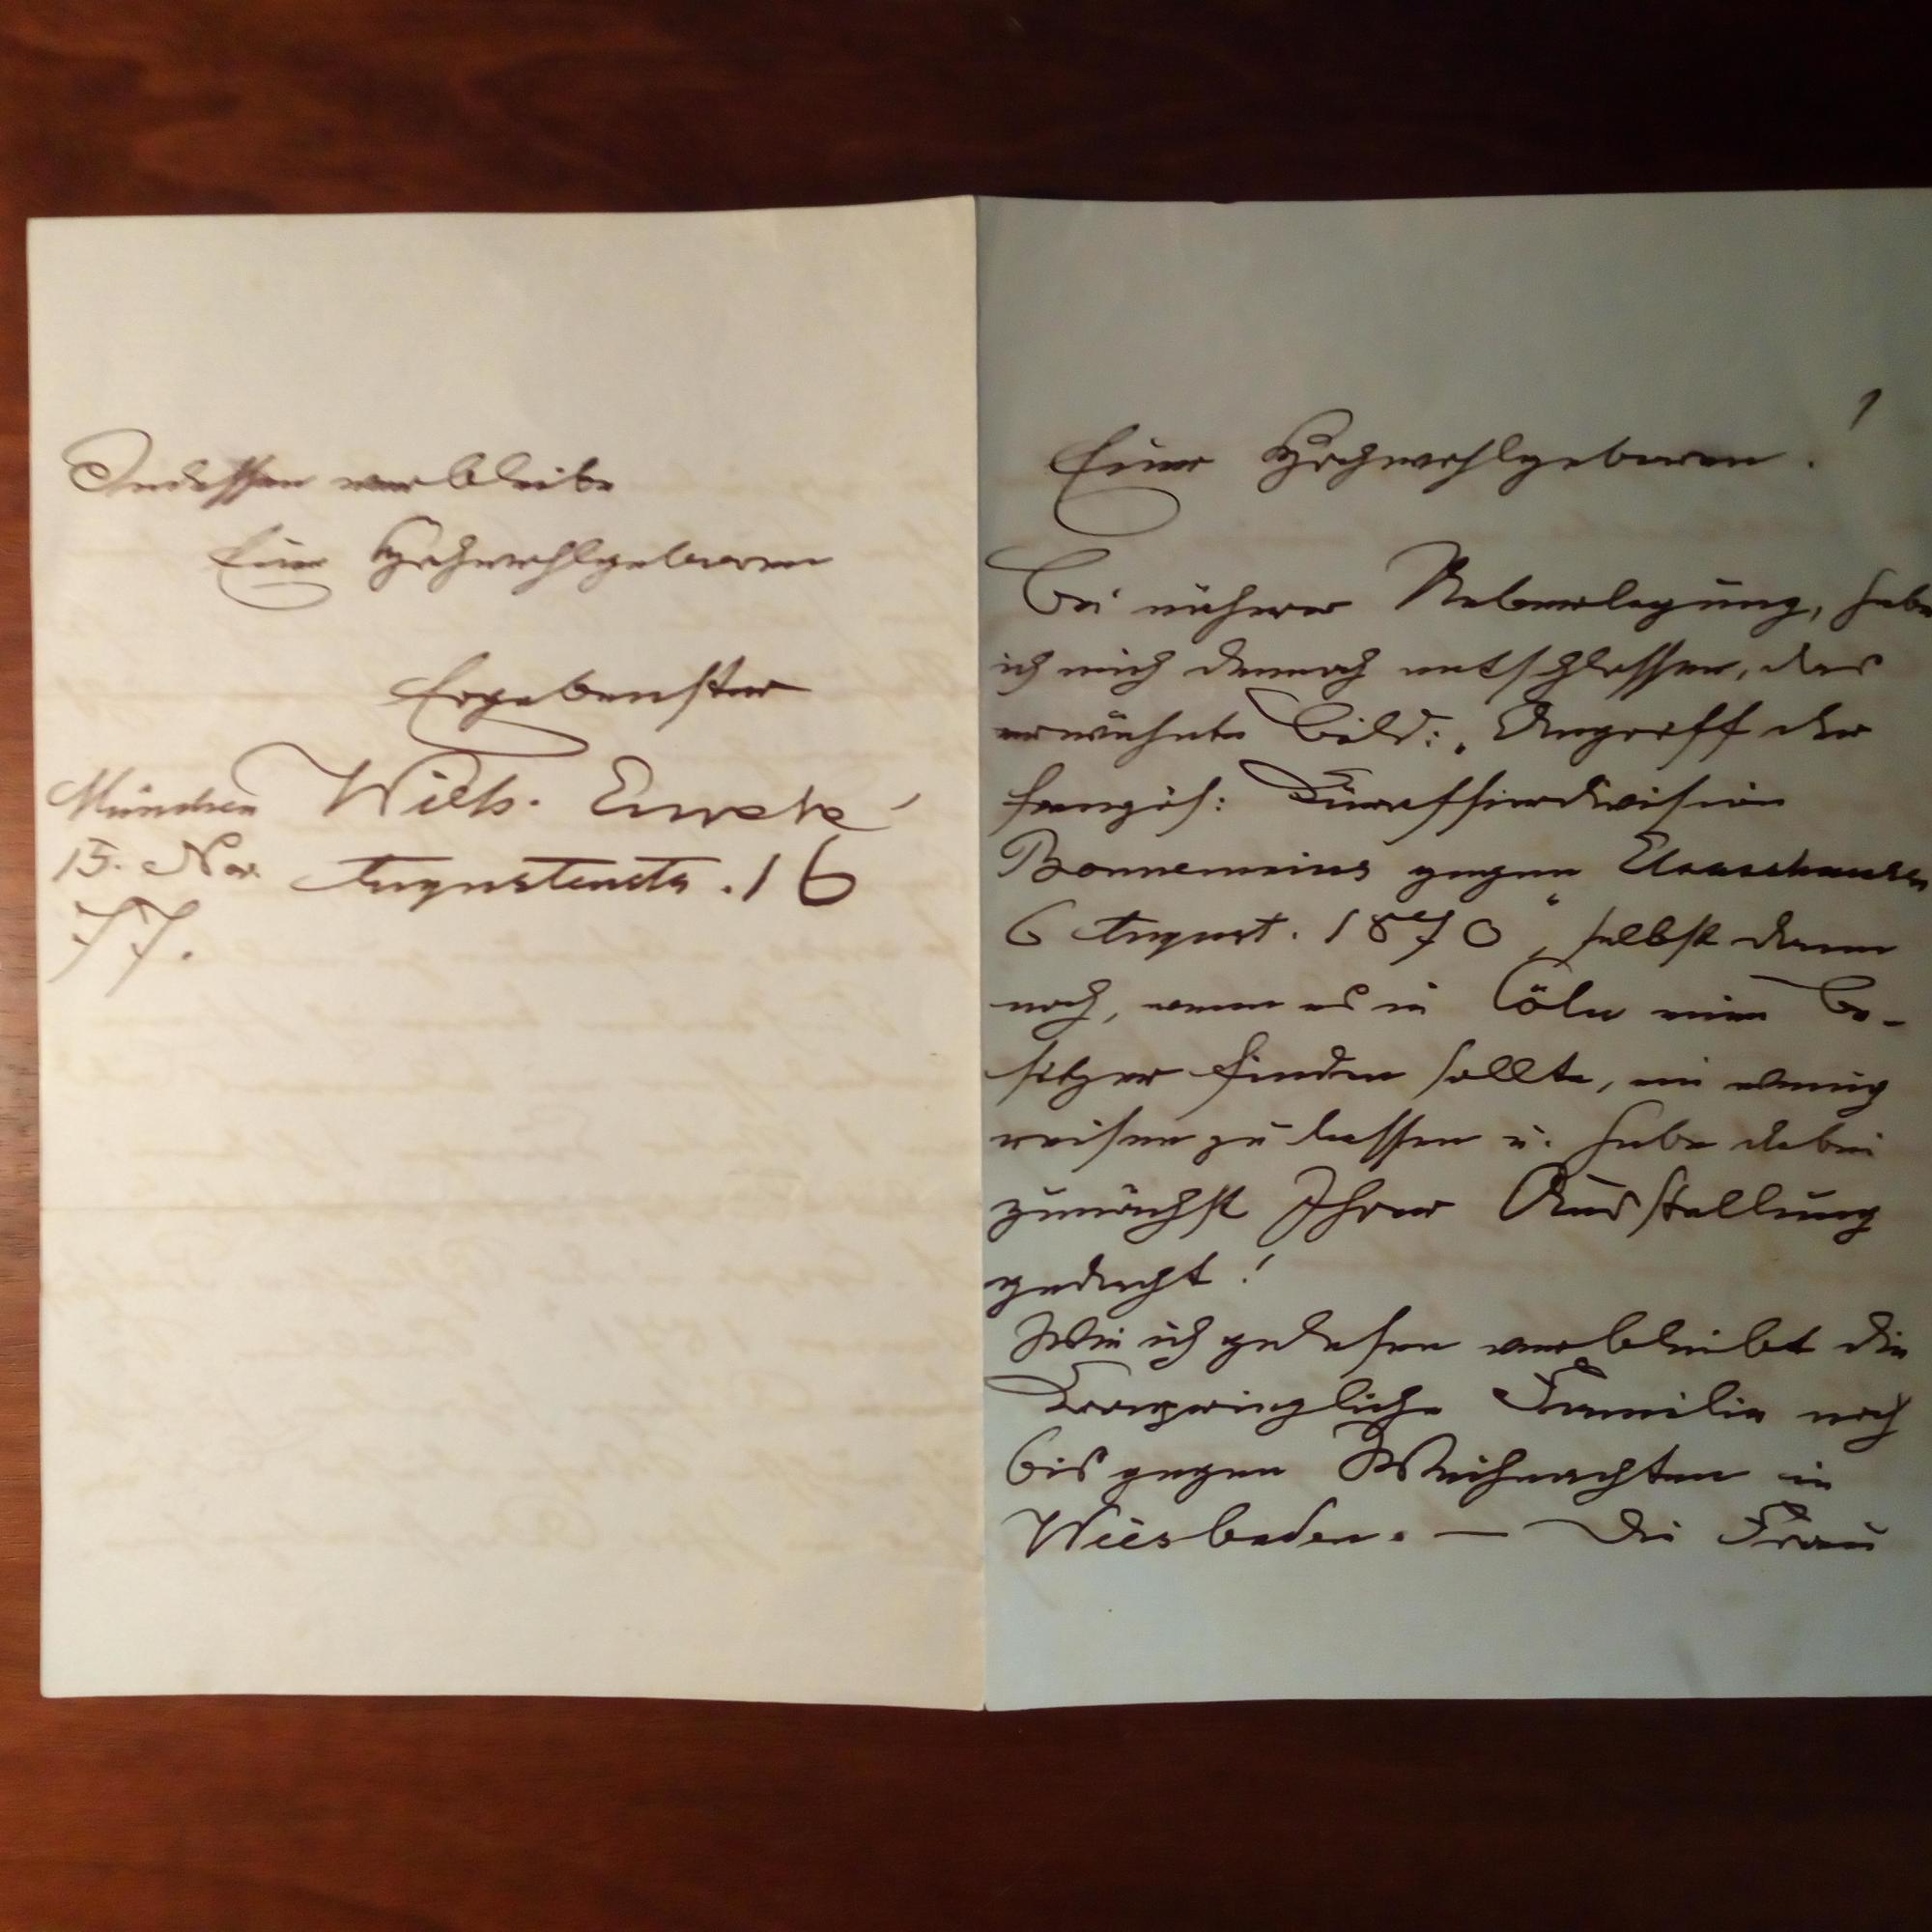 Indessen verbleibe
Euer Hochwohlgeboren
Ergebenster
Wilh. Emelé
München
15. Nov.
77.
Augustenstr. 16
1
Euer Hochwohlgeboren!
Bei näherer Ueberlegung, habe
ich mich dennoch entschlossen, das
erwähnte Bild: „Angriff der
französ: Kürassierdivision
Bonnemains gegen Elsasshausen
6 August. 1870“, selbst dann
noch, wenn es in Cöln einen Be-
sitzer finden sollte, ein wenig
reisen zu lassen u. habe dabei
zunächst Ihrer Ausstellung
gedacht!
Wie ich gelesen verbleibt die
Kronprinzliche Familie noch
bis gegen Weihnachten in
Wiesbaden. — Die Frau